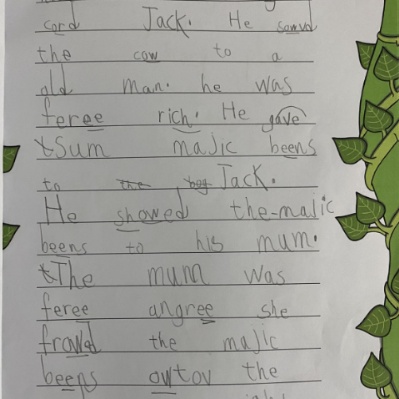 cord Jack. He sowd
the cow to a
old man. he was
feree rich. He gave
Sum majic beens
to the boy Jack.
He showed the majic
beens to his mum.
The mum was
feree angree she
frowd the majic
beens owtov the